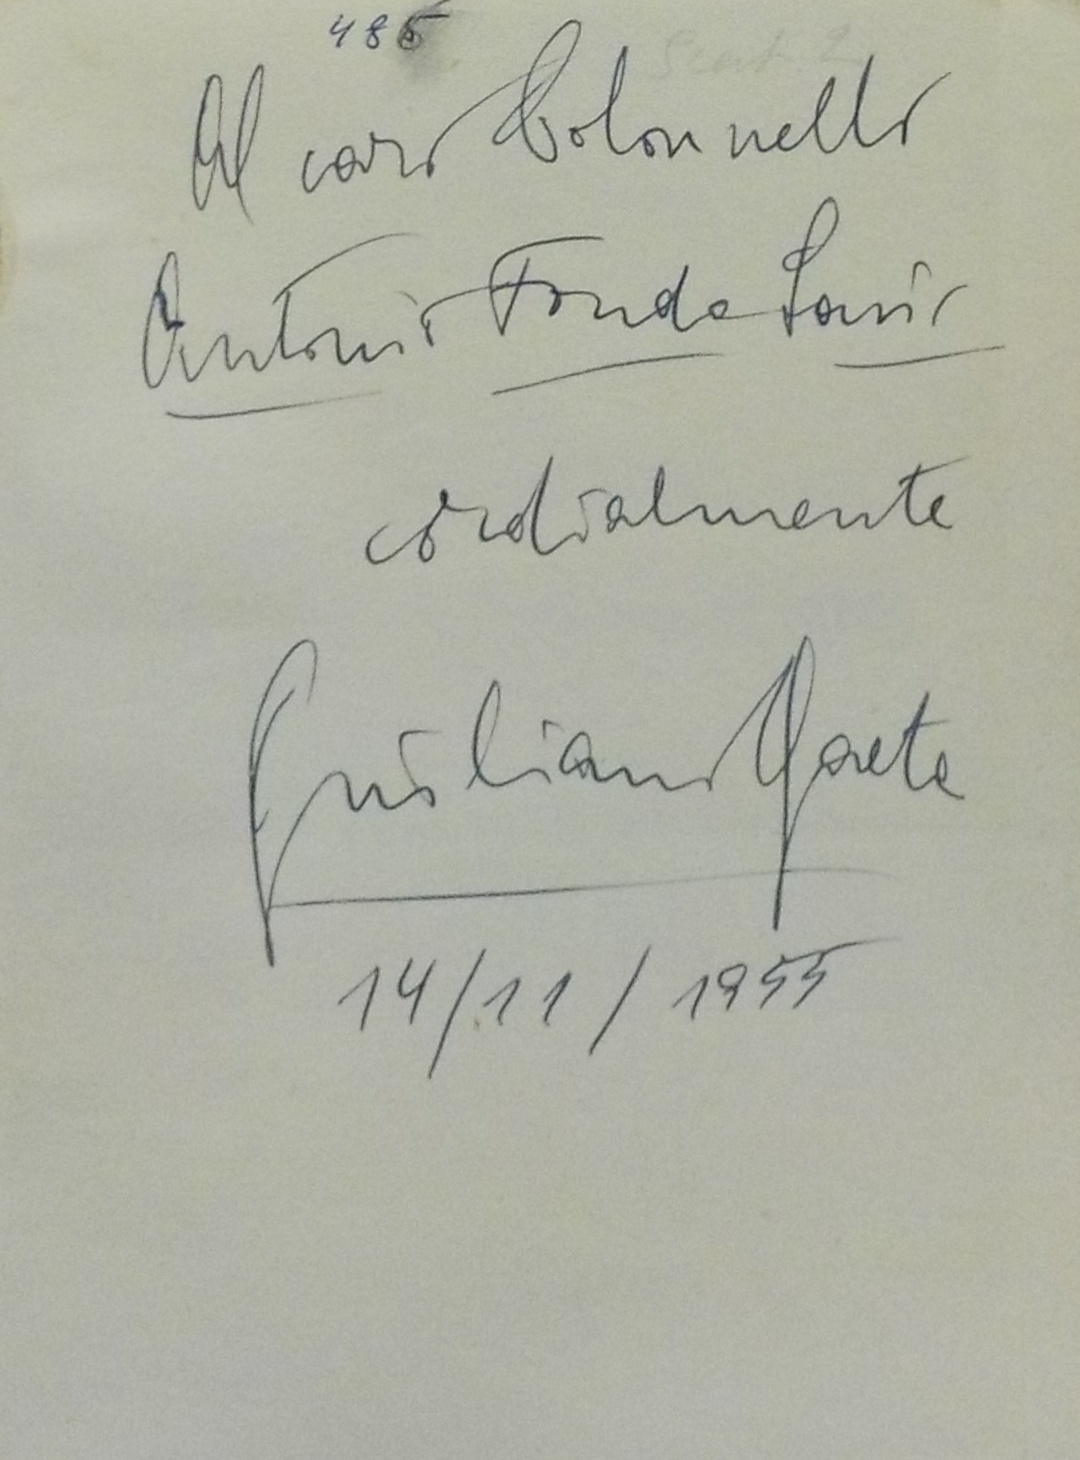 485
Al caro Colonnello
Antonio Fonda Savio
cordialmente
Giuliano Gaeta
14/11/1955